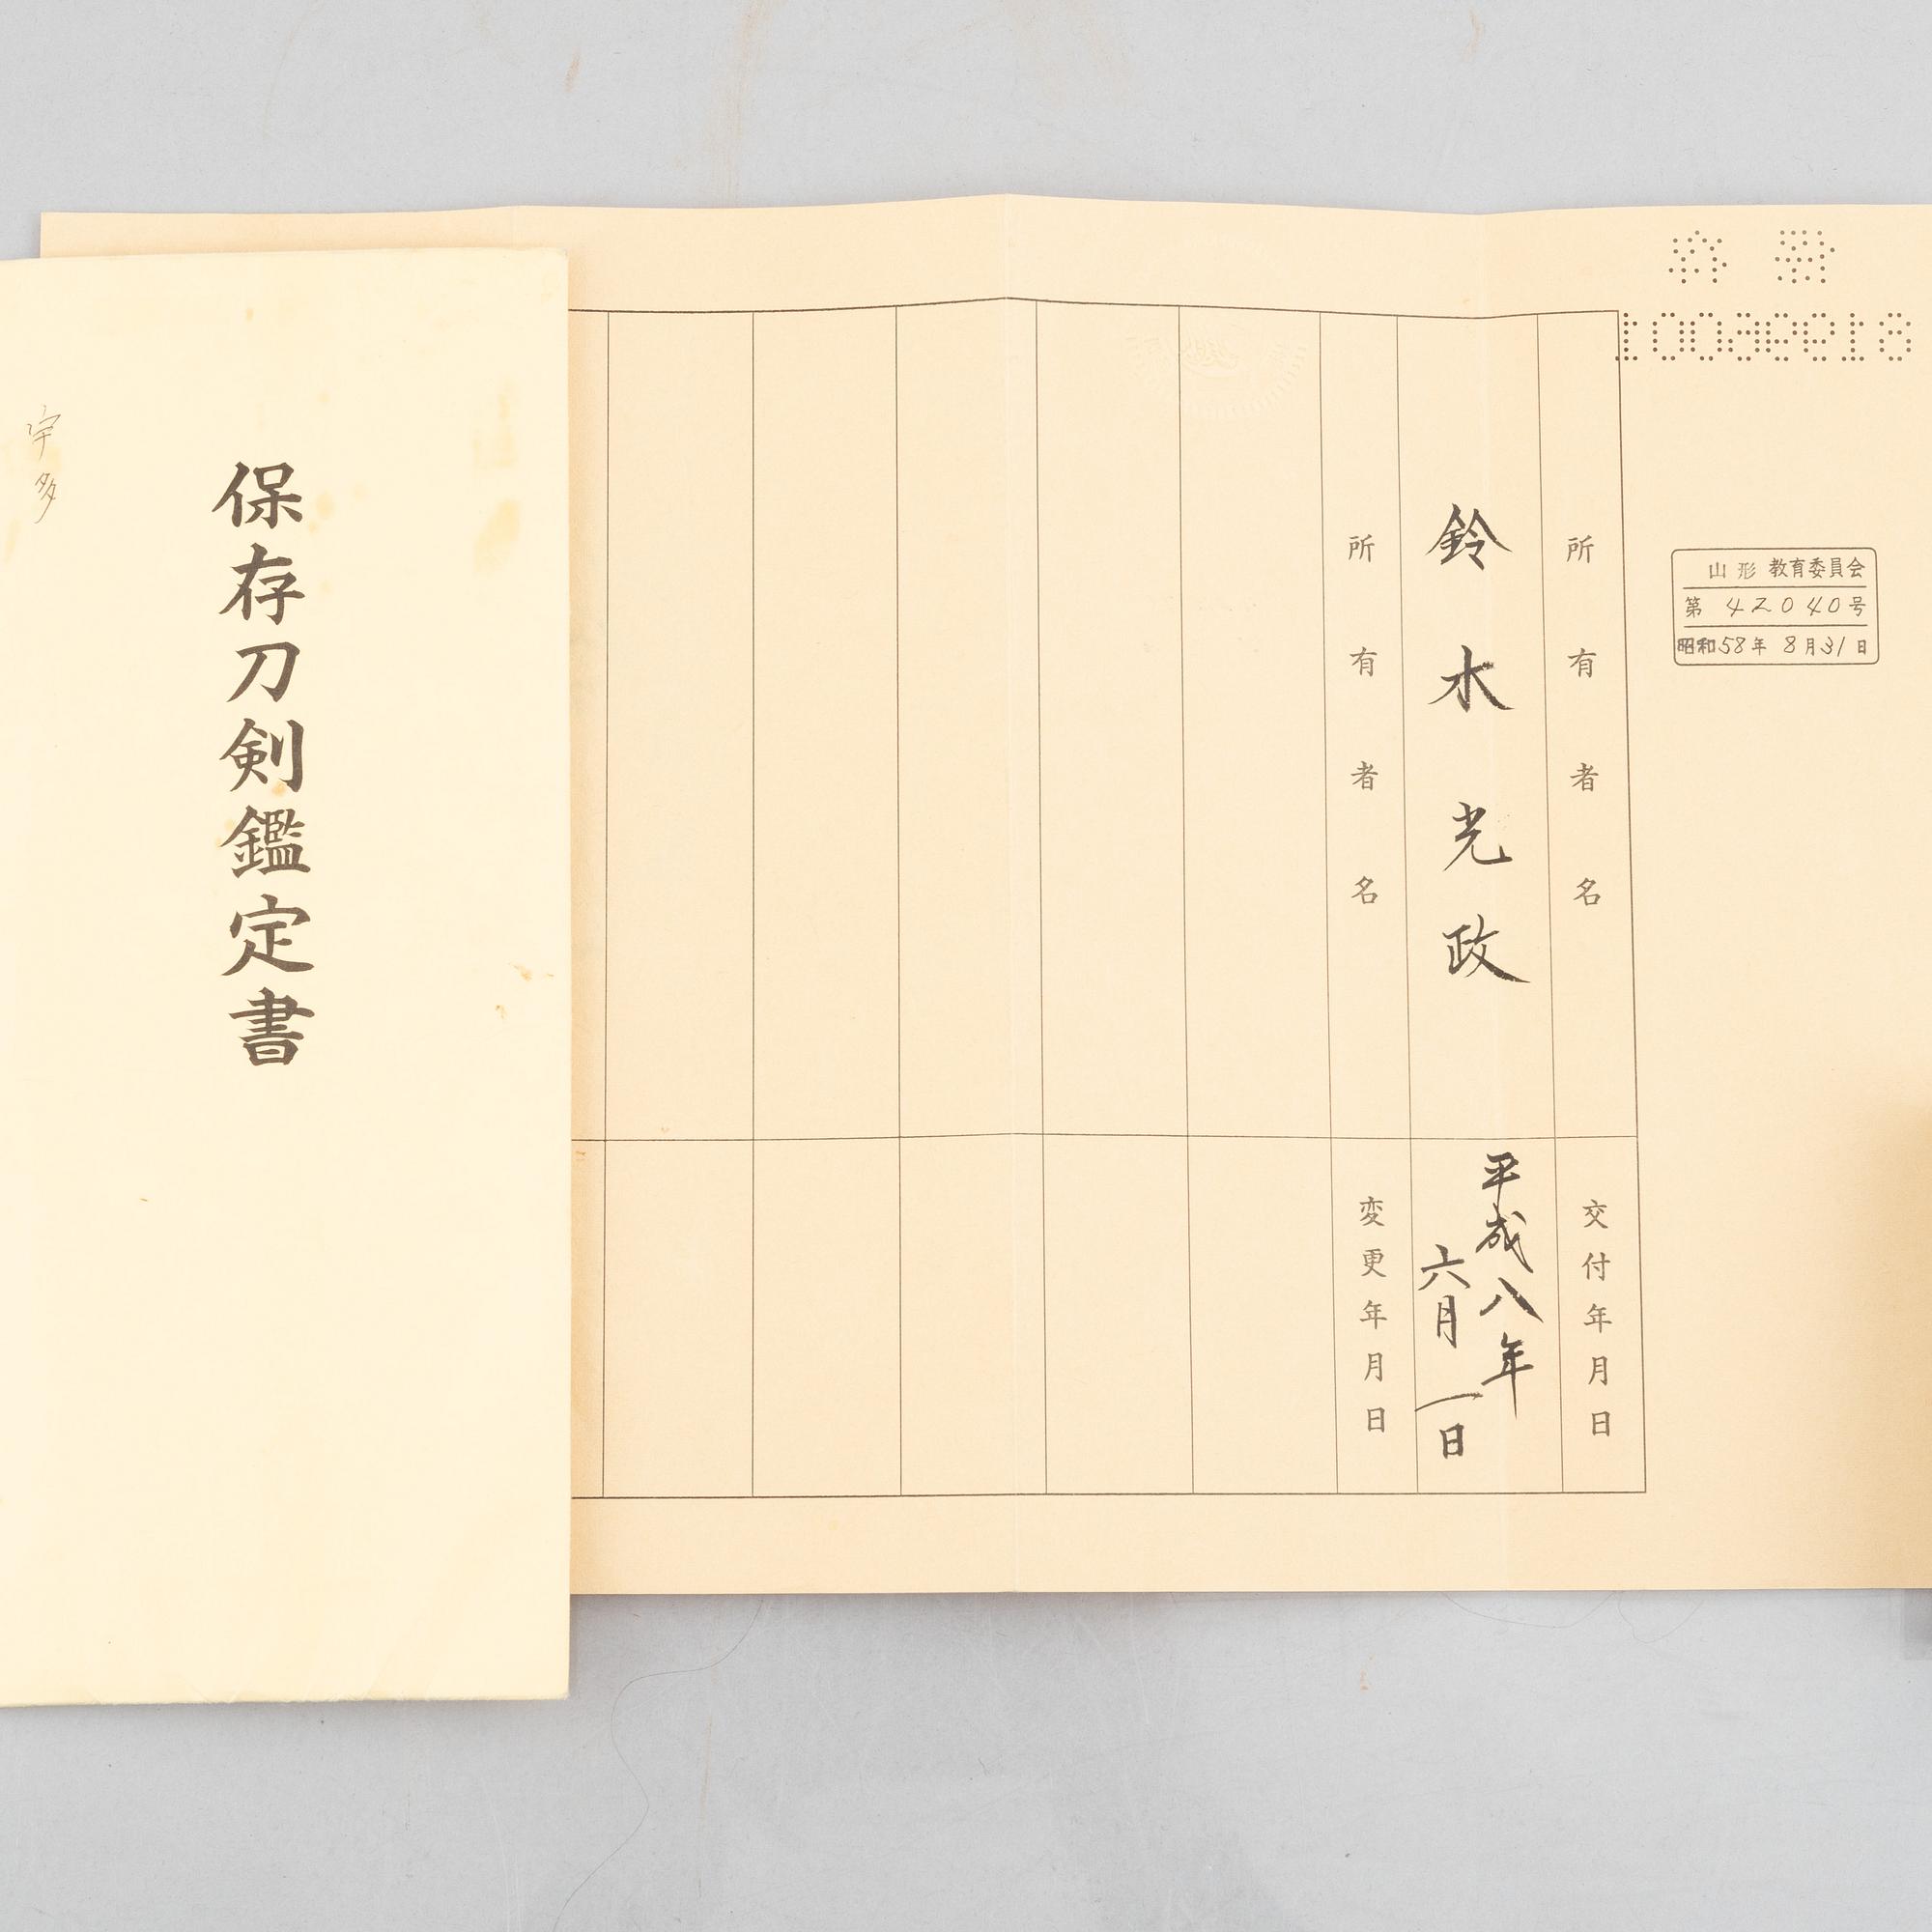 保存刀剣鑑定書
宇多
山形教育委員会
第 42040号
昭和58年 8月31日
所有者名
交付年月日
鈴木光政
平成八年
六月一日
所有者名
変更年月日